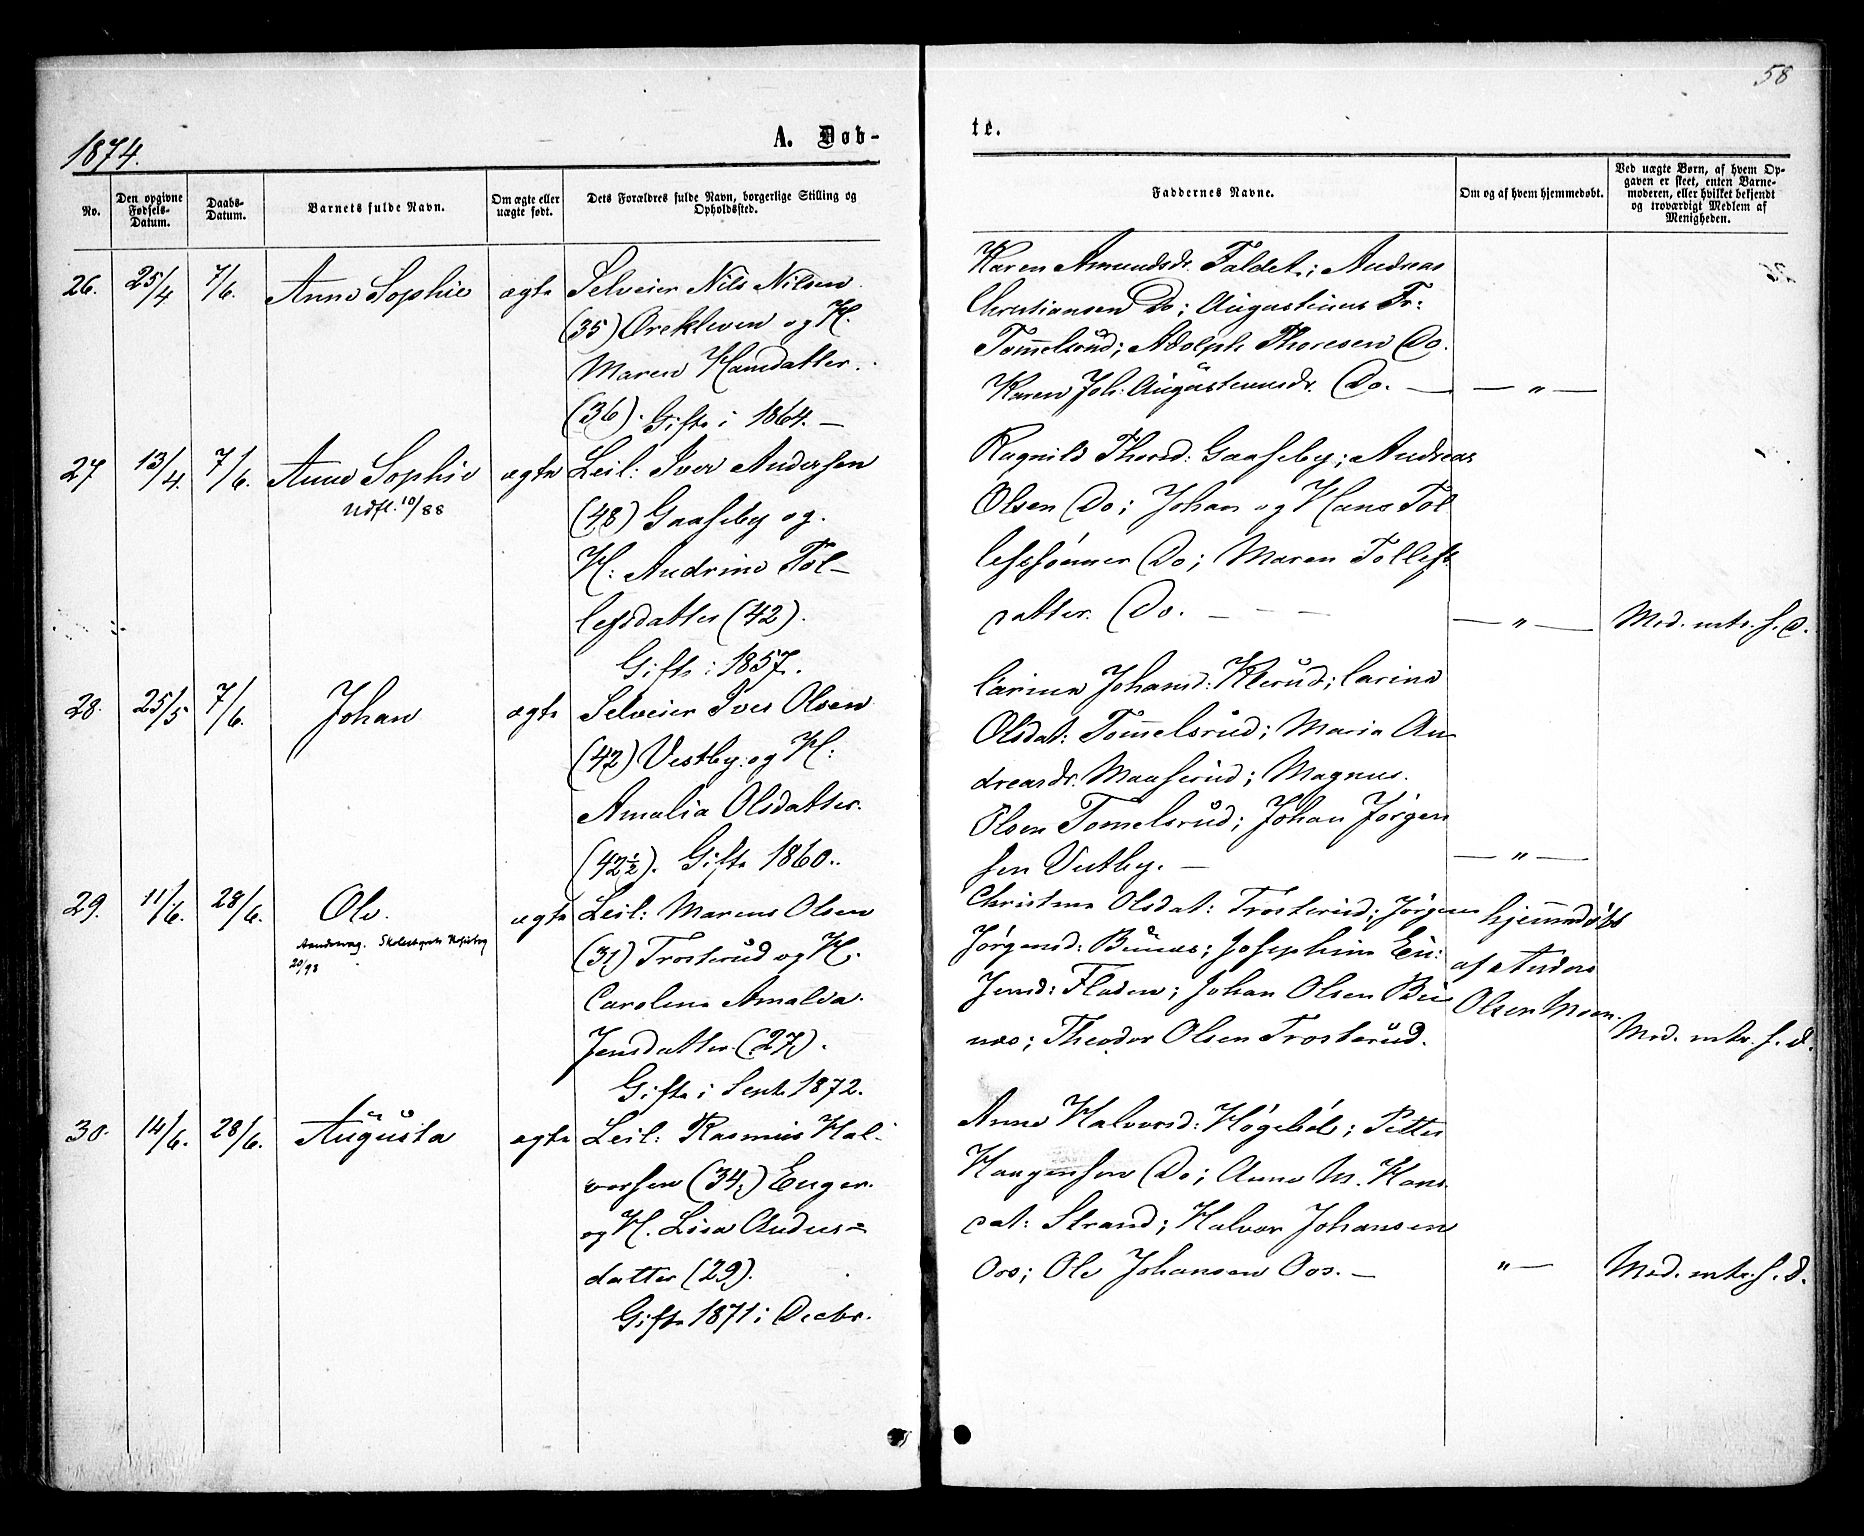 58
1874.
A. Døb-
te.
No.
Den opgivne Fødsels-Datum.
Daabs-Datum.
Barnets fulde Navn.
Om ægte eller uægte født.
Dets Forældres fulde Navn, borgerlige Stilling og Opholdssted.
Faddernes Navne.
Om og af hvem hjemmedøbt.
Ved uægte Børn, af hvem Opgaven er skeet, enten Barnemoderen, eller hvilket bekjendt og troværdigt Medlem af Menigheden.
26. 25/4 7/6. Anne Sophie ægte Selveier Nils Nilsen
(35) Orekleven og H.
Maren Hansdatter.
(36). Gifte i 1864. —
Karen Amundsdr. Faldet; Andreas
Christiansen Do; Augustinus Fr:
Tom̄elsrud; Adolph Thoresen Do.
Karen Joh. Augustinusdr. Do. — — " —
27 13/4. 7/6. Anne Sophie ægte Leil: Iver Andersen
Udfl. 10/88
(48) Gaaseby og.
H: Andrine Tol-
lefsdatter (42).
Gifte i 1857.
Ragnild Thorsd: Gaaseby; Andreas
Olsen Do; Johan og Hans Tol
lefssønner Do; Maren Tollefs
datter. Do. — — " — Med. mtr. s. d.
28. 25/5 7/6. Johan ægte Selveier Iver Olsen
(42) Vestby. og H:
Amalia Olsdatter.
(42½). Gifte 1860.
Carina Johansd: Klerud; Carina
Olsdat: Tom̄elsrud; Maria An
dreasdr. Maaserud; Magnus.
Olsen Tomelsrud; Johan Jørgen
sen Vestby. — — " —
29. 11/6. 28/6. Ole. ægte Leil: Marens Olsen
20/98
(31) Trosterud og H.
Caroline Amalia.
Jensdatter (27).
Gifte i Sept. 1872.
Christine Olsdat: Trosterud; Jørgen
Jørgensd: Bunæs; Josephine Eu:
Jensd: Fladen; Johan Olsen Bu
næs; Theodor Olsen Trosterud.
hjem̄edøbt
af Anders
Olsen Moen.
Med. mtr. s. d.
30. 14/6. 28/6. Augusta ægte Leil: Rasmus Hal-
versen (34) Enger.
og H. Lisa Anders=
datter (29).
Gifte 1871 i Decbr.
Anne Halvorsd: Høgebøl; Petter
Haagensen Do; Anne M. Hans
dat: Strand; Halvor Johansen
Oos; Ole Johansen Oos. — " — Med. mtr. s. d.